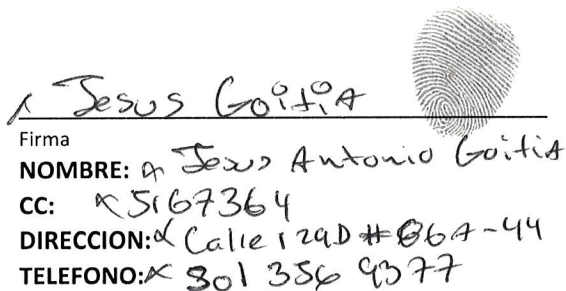 x Jesus Goitia
Firma
NOMBRE: x Jesus Antonio Goitia
CC: x 5167364
DIRECCION: x Calle 129D # 86A-44
TELEFONO: x 301 356 9377